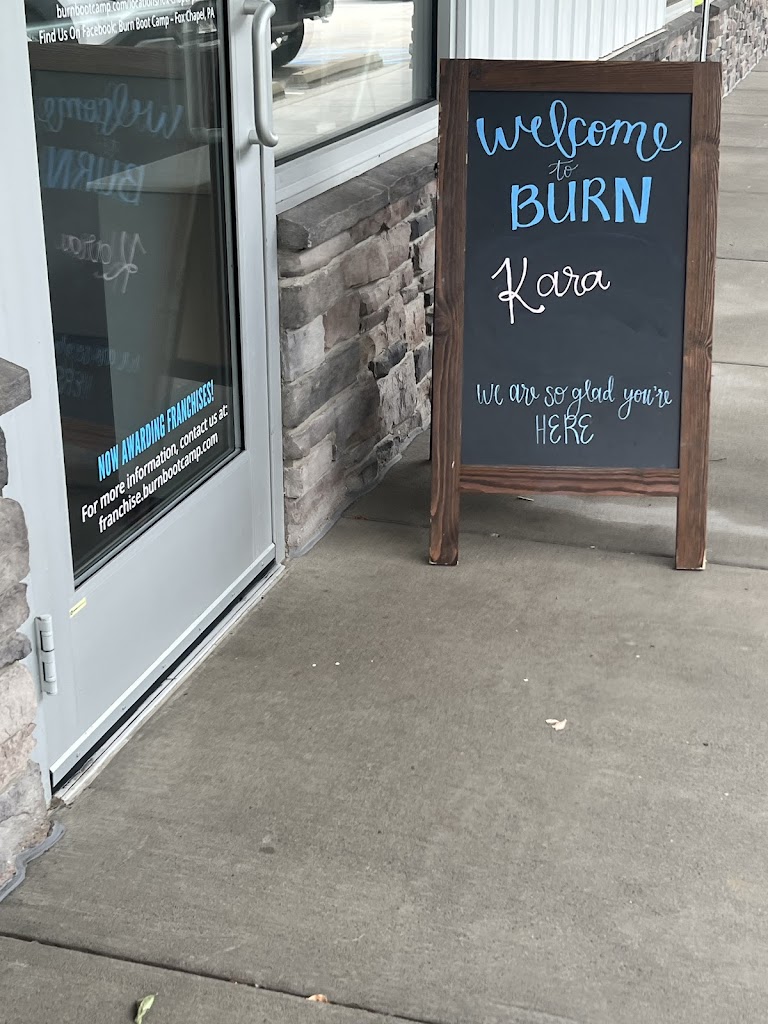 Find Us On Facebook: Burn Boot Camp - Fox Chapel, PA
NOW AWARDING FRANCHISES!
For more information, contact us at:
franchise.burnbootcamp.com
Welcome
to
BURN
Kara
We are so glad you're
HERE